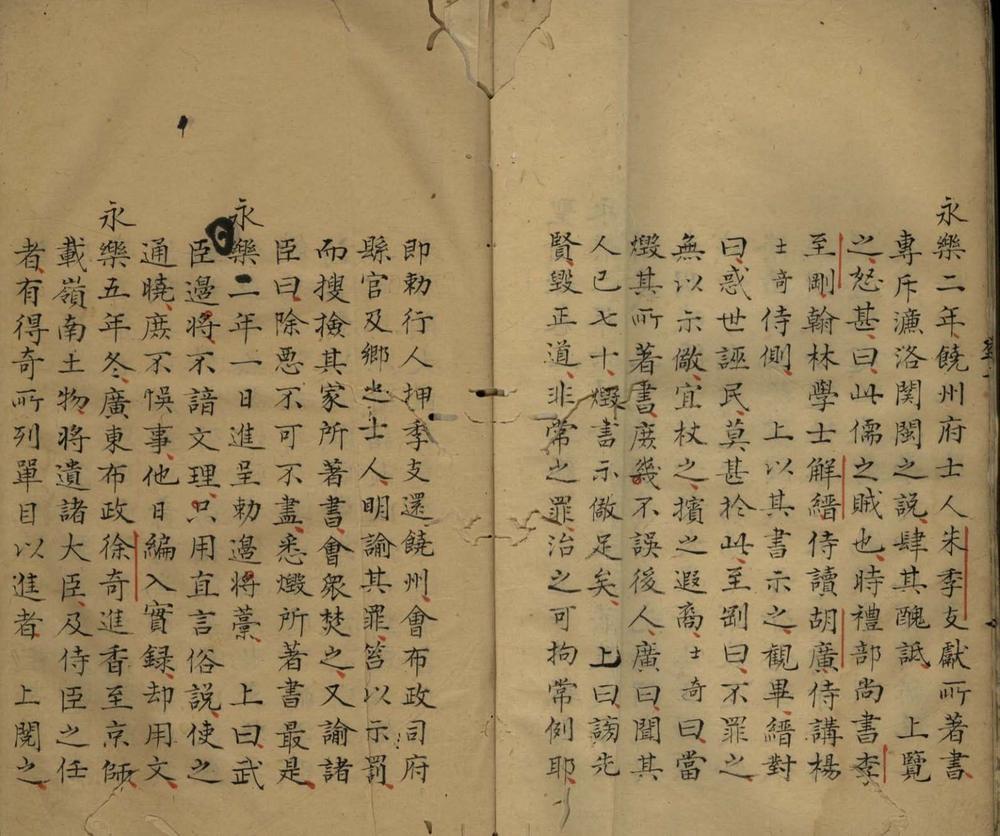 永樂二年饒州府士人朱季友獻所著書
專斥濂洛関閩之説肆其醜詆　上覽
之怒甚曰此儒之賊也時禮部尚書李
至剛翰林學士解縉侍讀胡廣侍講楊
士奇侍側　上以其書示之觀畢縉對
曰惑世誣民莫甚於此至剛曰不罪之
無以示儆宜杖之擯之遐裔士奇曰當
燬其所著書庶幾不誤後人廣曰聞其
人已七十燬書示儆足矣　上曰謗先
賢毀正道非常之罪治之可拘常例耶
即勅行人押季支還饒州會布政司府
縣官及鄉之士人明諭其罪笞以示罰
而搜撿其家所著書會衆焚之又諭諸
臣曰除惡不可不盡悉燬所著書最是
永樂二年一日進呈勅邊將藁　上曰武
臣邊將不諳文理只用直言俗説使之
通曉庶不悞事他日編入實録却用文
永樂五年冬廣東布政徐奇進香至京師
載嶺南土物將遺諸大臣及侍臣之任
者有得奇所列單目以進者　上閱之